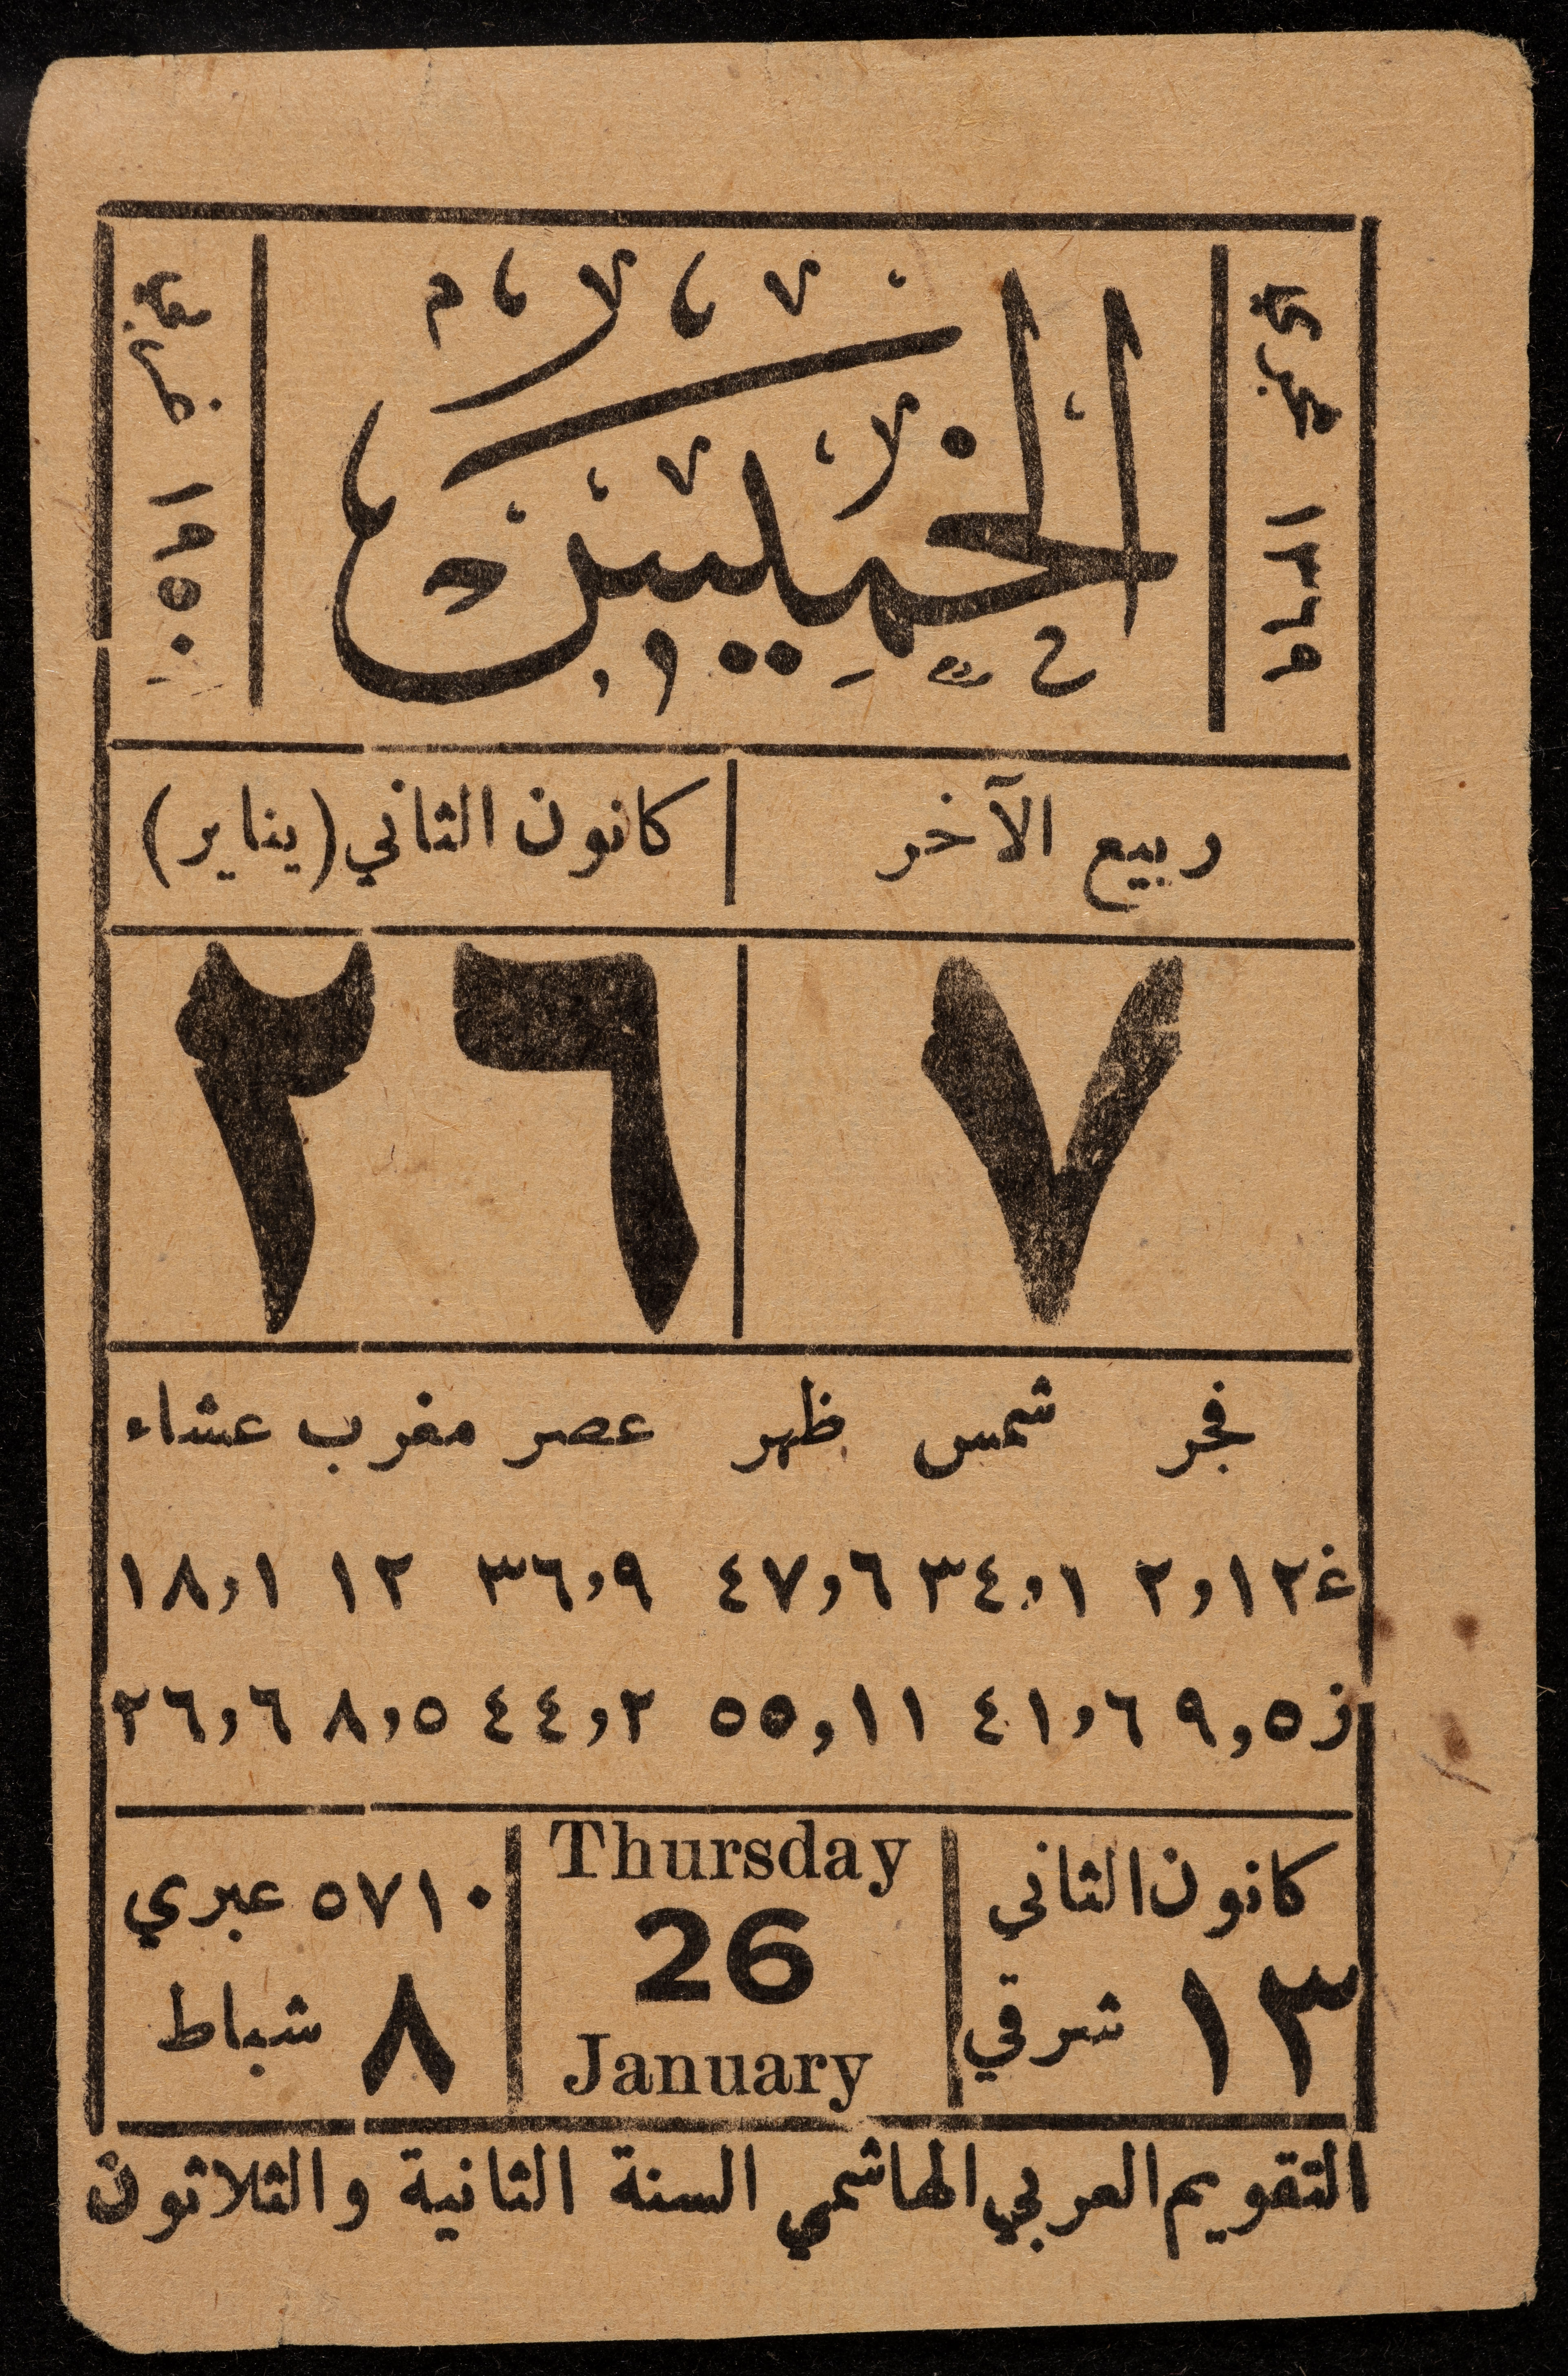 ١٣٦٩ هجرية
الخميس
١٩٥٠ غربية
ربيع الآخر
كانون الثاني (يناير)
٧
٢٦
فجر شمس ظهر عصر مغرب عشاء
غ ٢,١٢ ٣٤,١ ٤٧,٦ ٣٦,٩ ١٢ ١٨,١
ز ٩,٥ ٤١,٦ ٥٥,١١ ٤٤,٢ ٨,٥ ٢٦,٦
كانون الثاني
١٣ شرقي
Thursday
26
January
٥٧١٠ عبري
٨ شباط
التقويم العربي الهاشمي السنة الثانية والثلاثون